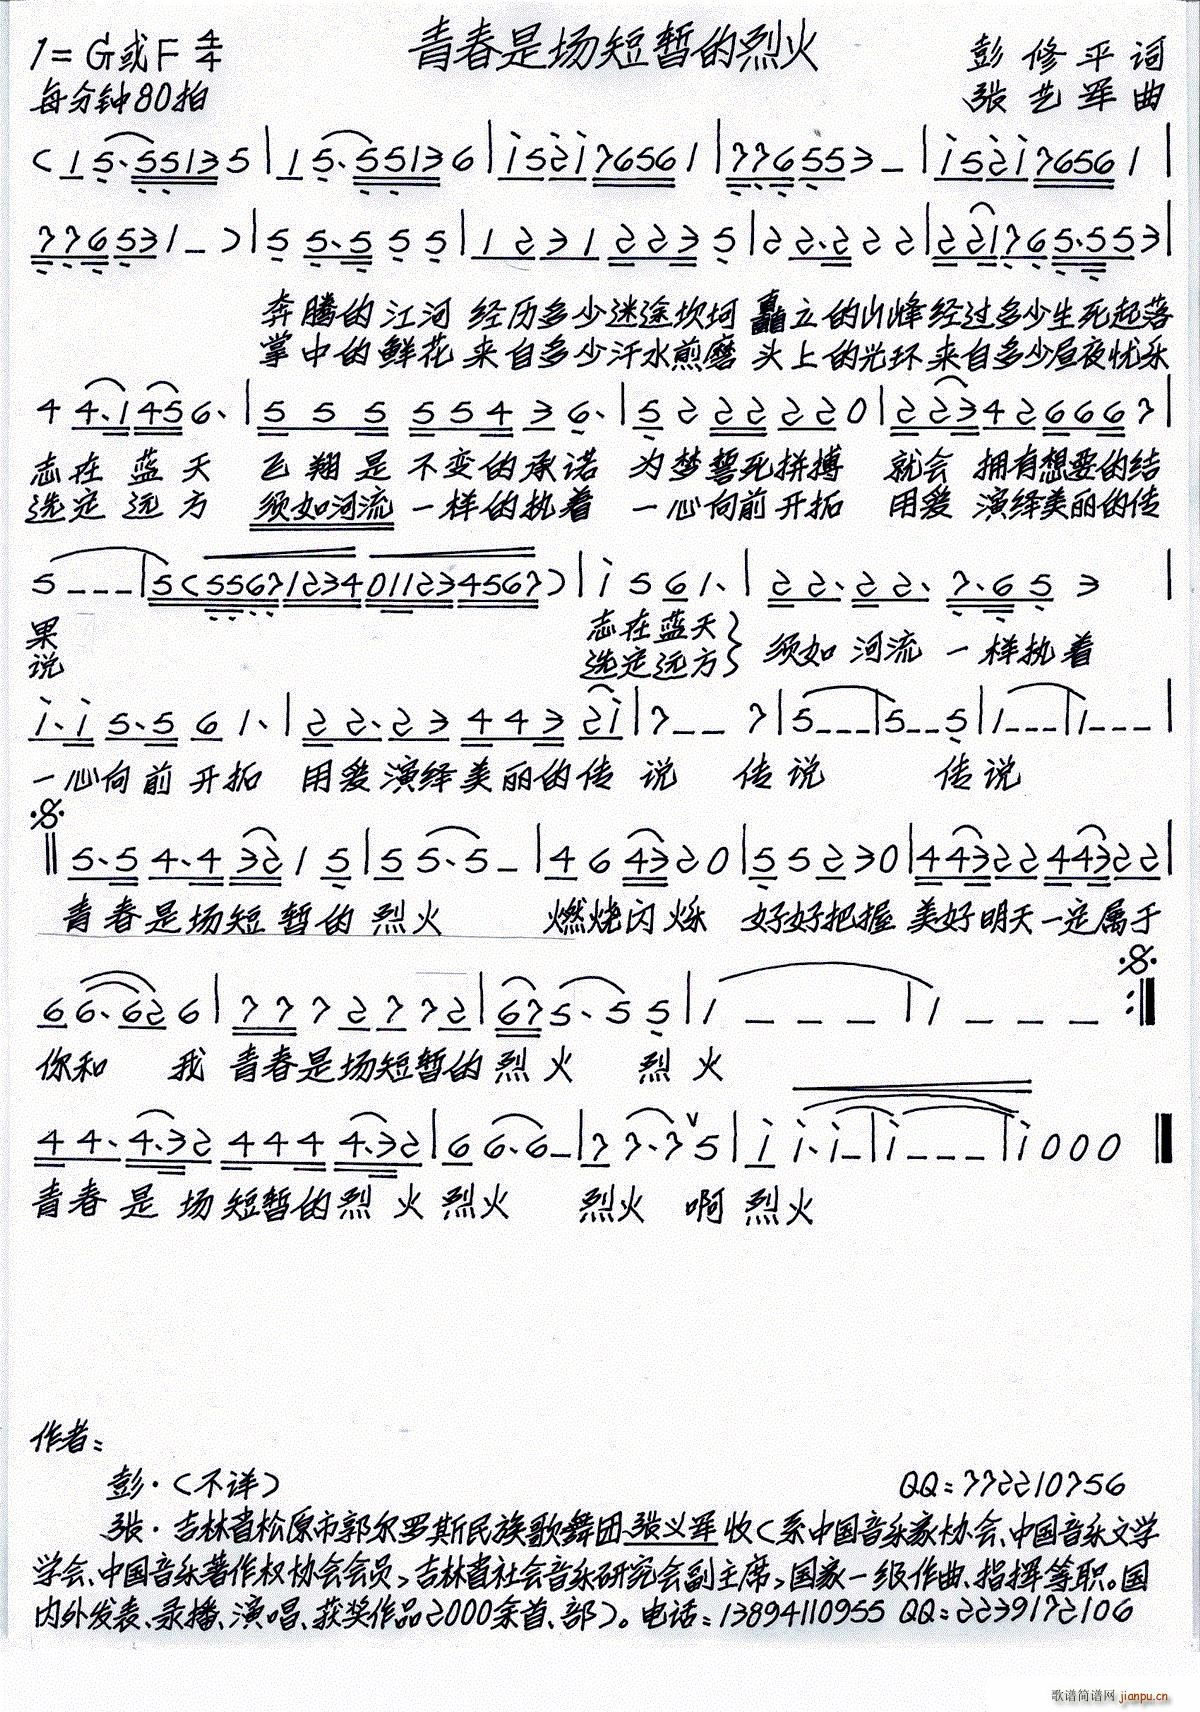 青春是场短暂的烈火
1=G或F 4/4
每分钟80拍
彭修平词
张艺军曲
(1 5·55135|15·55136|i52i76561|776553–|i52i76561|
776531–)|55·555|1231 2235|22·222|221765·553|
奔腾的江河 经历多少迷途坎坷 矗立的山峰经过多少生死起落
掌中的鲜花 来自多少汗水煎磨 头上的光环 来自多少昼夜忧乐
44·1456·|555 55436·|52222220|223426667|
志在蓝天 飞翔是不变的承诺 为梦誓死拼搏 就会拥有想要的结
选定远方 须如河流一样的执着 一心向前开拓 用爱演绎美丽的传
5–––|5(55671234011234567)|i561·|22·22·7·653|
果 志在蓝天}
说 选定远方} 须如河流一样执着
i·i5·561·|22·234432i|7––7|5–––|5––5|1–––|1–––|
一心向前开拓 用爱演绎美丽的传说 传说 传说
𝄋
‖5·54·43215|55·5–|464320|552 30|4432244322|
青春是场短暂的烈火 燃烧闪烁 好好把握 美好明天一定属于
𝄋
66·626|77727 72|675·55|1–––|1–––:‖
你和我 青春是场短暂的烈火 烈火
44·4·324444·32|66·6–|77·7∨5|ii·i–|i–––|i000‖
青春是场短暂的烈火 烈火 烈火 啊 烈火
作者:
彭·(不详) QQ:772210756
张·吉林省松原市郭尔罗斯民族歌舞团张义军收(系中国音乐家协会、中国音乐文学
学会、中国音乐著作权协会会员,吉林省社会音乐研究会副主席,国家一级作曲、指挥等职。国
内外发表、录播、演唱、获奖作品2000余首、部)。电话:13894110955 QQ:2239172106
歌谱简谱网 jianpu.cn